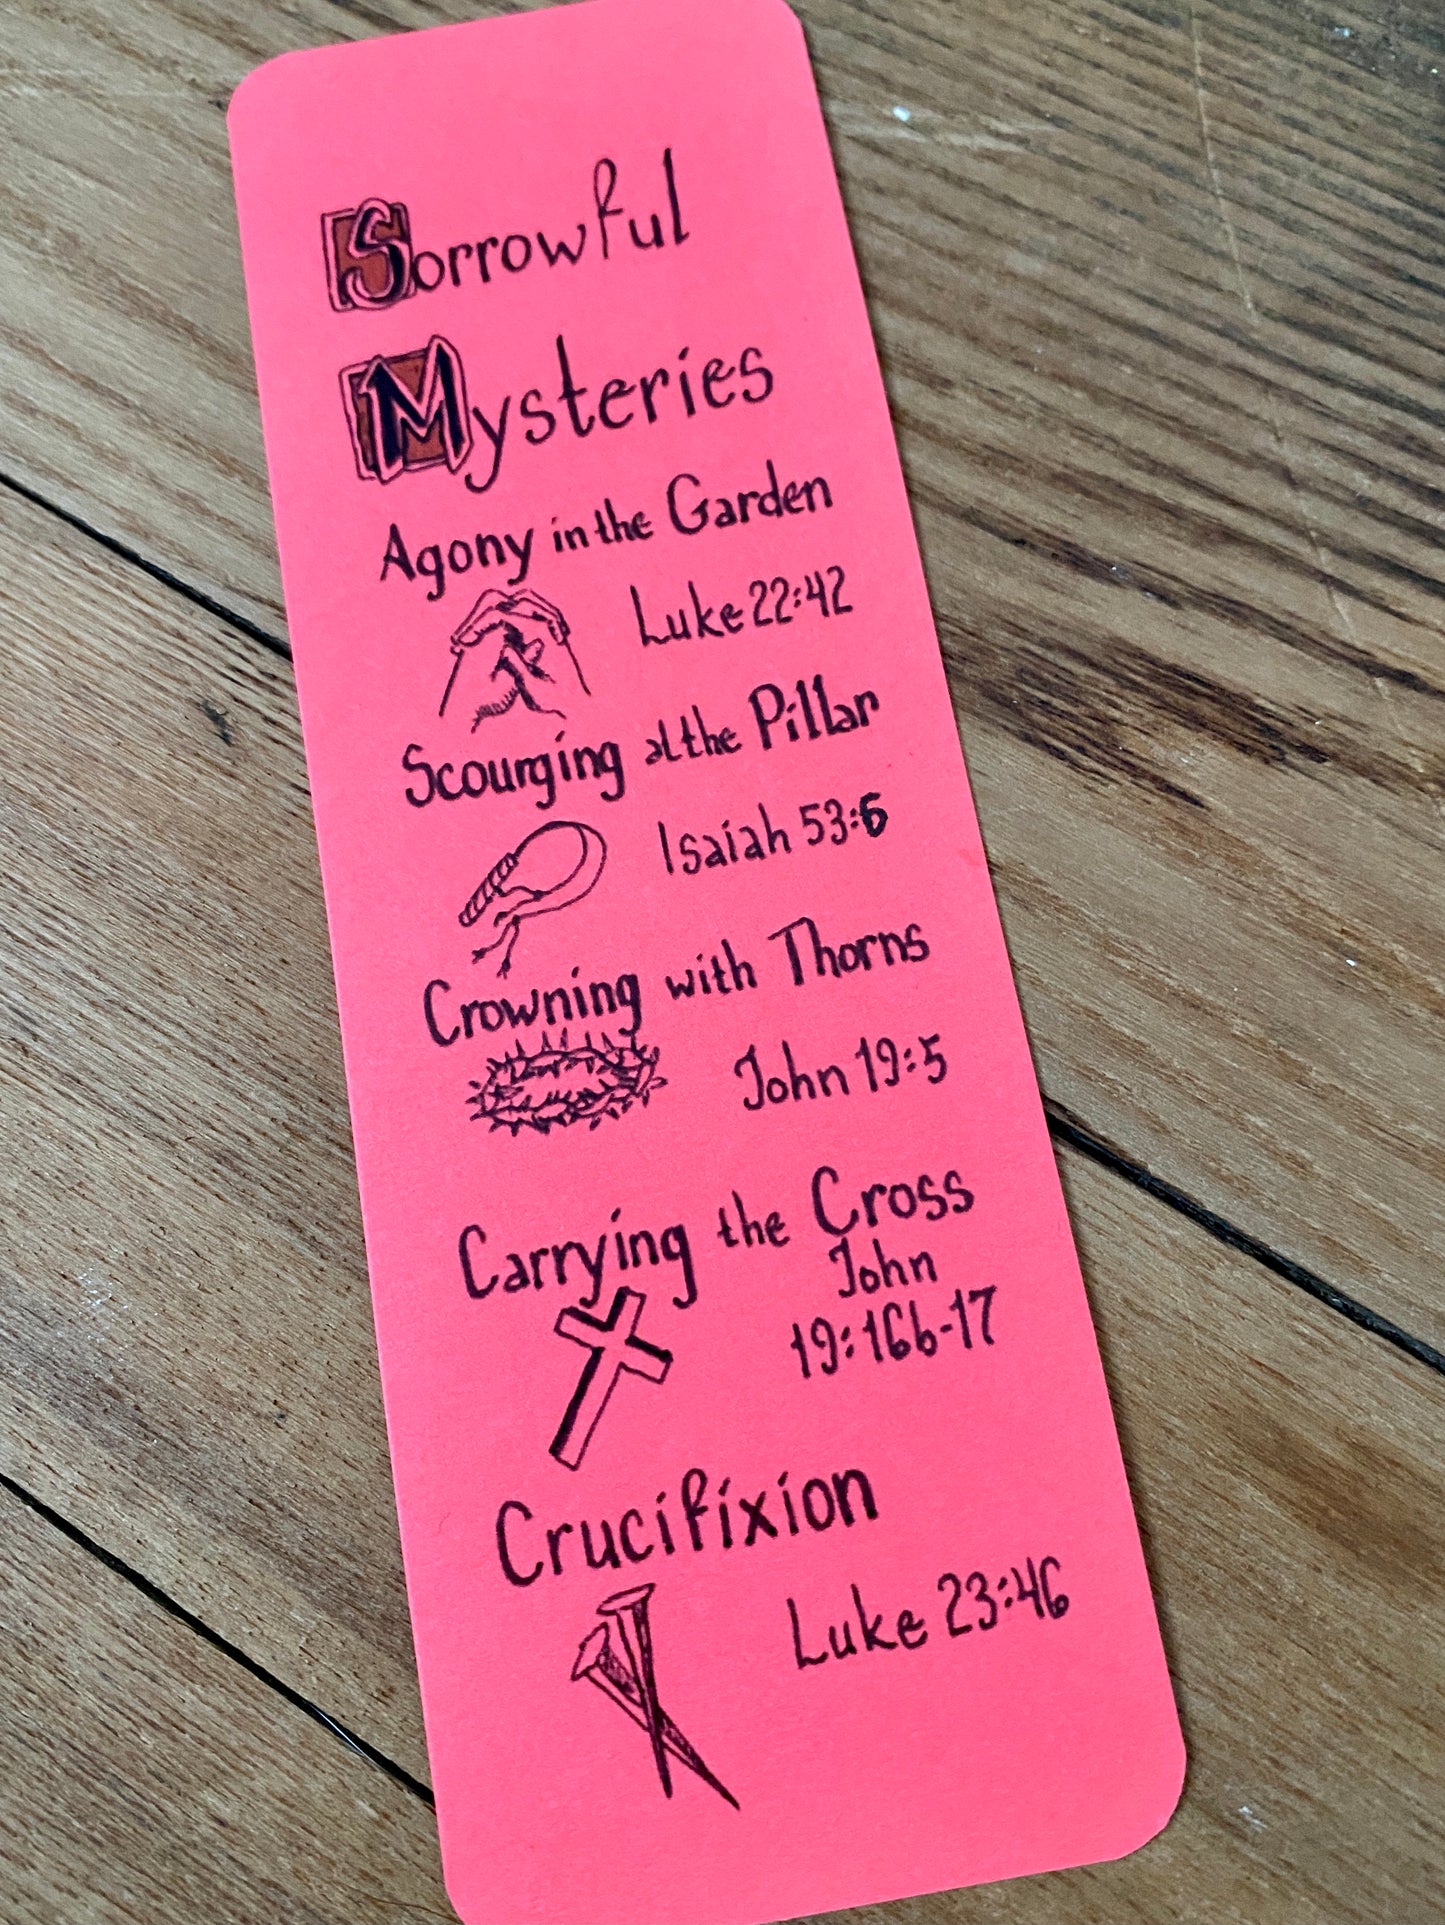 Sorrowful
Mysteries
Agony in the Garden
Luke 22:42
Scourging at the Pillar
Isaiah 53:6
Crowning with Thorns
John 19:5
Carrying the Cross
John
19:16b-17
Crucifixion
Luke 23:46